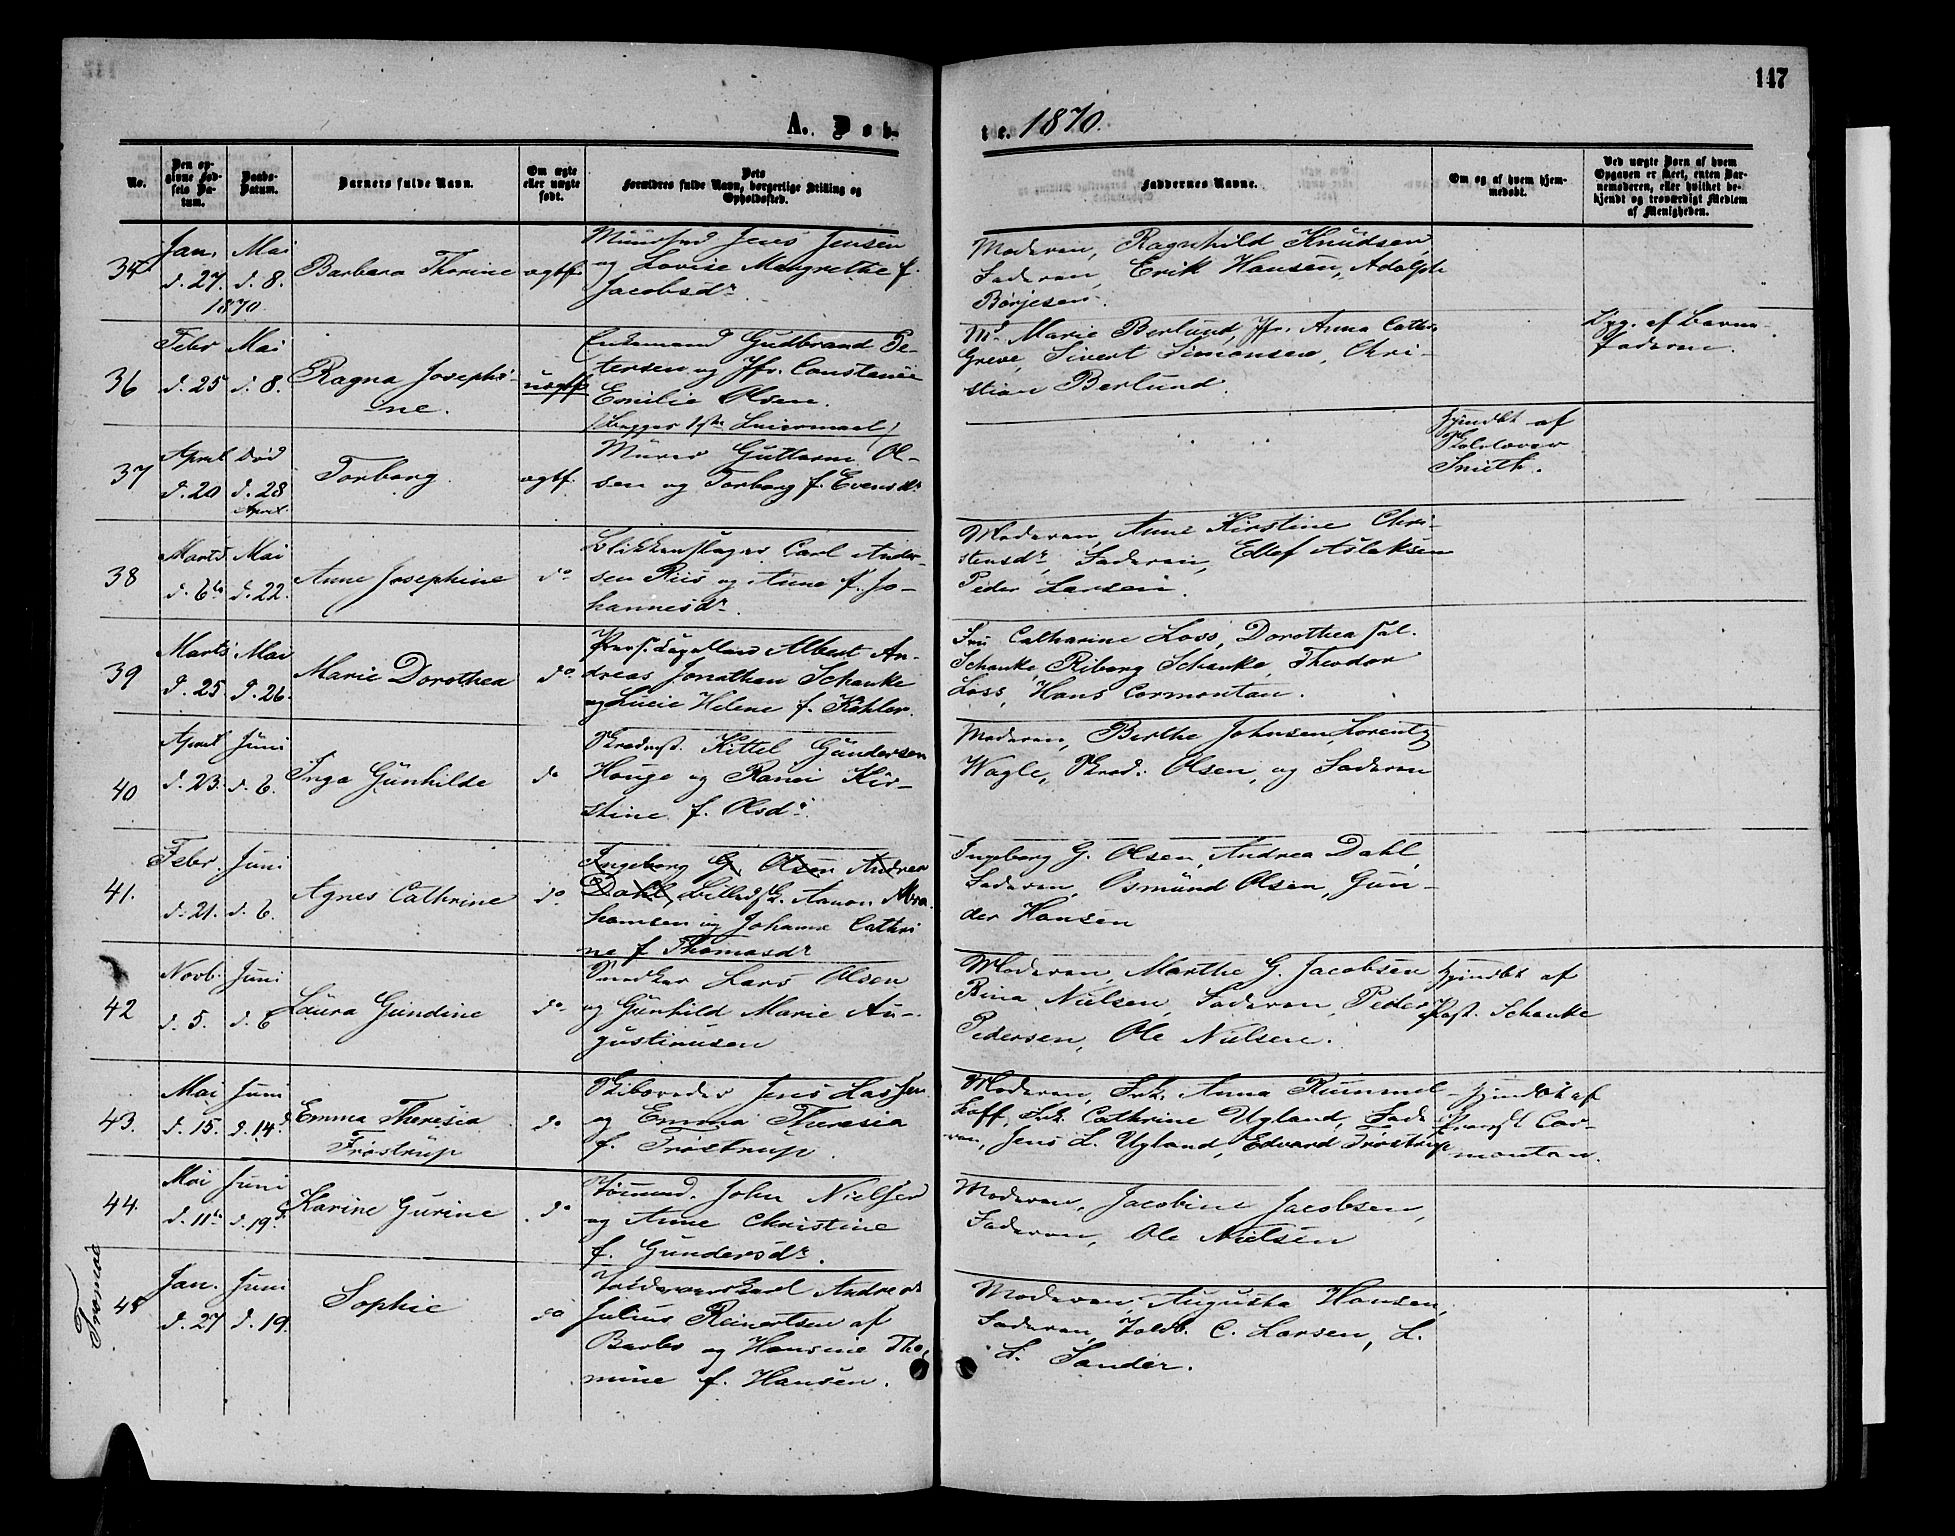 147
A. Døb-
te. 1870.
No.
Den op-
givne Fød-
sels Da-
tum.
Daabs-
Datum.
Barnets fulde Navn.
Om ægte
eller uægte
født.
Dets
Forældres fulde Navn, borgerlige Stilling og
Opholdssted.
Faddernes Navne.
Om og af hvem hjem-
medøbt.
Ved uægte Børn af hvem
Opgaven er skeet, enten Bar-
nemoderen, eller hvilket be-
kjendt og troværdigt Medlem
af Menigheden.
35
Jan.
d. 27.
1870
Mai
d. 8.
Barbara Thorine
ægtf.
Jens Jensen
og Lovise Margrethe f.
Jacobsdr.
Moderen, Ragnhild Knudsen,
Faderen, Erik Hansen, Adolph
Børjesen.
36
Febr
d. 25
Mai
d. 8.
Ragna Josephi-
ne.
uægtf
Enkemand Gudbrand Pe-
tersen og Jfr. Constance
Emilie Olsen.
(begges 1ste Leiermaal)
Md. Marie Berlund, Jfr. Anna Cathr.
Greve, Sivert Simonsen, Chri-
stian Berlund.
Opg. af Barne-
faderen.
37
April
d. 20
Død
d. 28
April
Torborg.
ægtf.
Murer Guttorm Ol-
sen og Torborg f. Evensdr.
Hjmdbt af
Smith.
38
Marts
d. 6te
Mai
d. 22.
Anne Josephine
do
Blikkenslager Carl Ander-
sen Riis og Anne f. Jo-
hannesdr.
Moderen, Anne Kirstine Chri-
stensdr, Faderen, Ellef Aslaksen
Peder Larsen.
39
Marts
d. 25
Mai
d. 26.
Marie Dorothea
do
Pers. Capellan Albert An-
dreas Jonathan Schanke
og Lucie Helene f. Kahler.
Fru Catharine Loss, Dorothea sal.
Schanke, Riborg Schanke, Theodor
Loss, Hans Cormontan.
40
April
d. 23.
Juni
d. 6.
Inga Gunhilde
do
Skredst. Kittel Gundersen
Houge og Ranei Kir-
stine f. Olsdr.
Moderen, Berthe Johnsen, Lorentz
Wagle, Skred. Olsen, og Faderen
41.
Febr.
d. 21.
Juni
d. 6.
Agnes Cathrine
do
Ingeborg G. Olsen Andrea
Dahl, Aanon Abra-
hamsen og Johanne Cathri
ne f Thomasdr
Ingeborg G. Olsen, Andrea Dahl,
Faderen, Osmund Olsen, Gun-
der Hansen
42
Novb.
d. 5.
Juni
d. 6
Laura Gundine
do
Snedker Lars Olsen
og Gunhild Marie Au-
gustinusen
Moderen, Marthe G. Jacobsen
Bina Nielsen, Faderen, Peder
Pedersen, Ole Nielsen.
Hjmdbt af
Past. Schanke
43.
Mai
d. 15.
Juni
d. 14d.
Emma Theresia
Trøstrup
do
Skibsreder Jens Lassen
og Emma Theresia
f. Trøstrup.
Moderen, Frk. Anna Rummel-
hoff, Frk. Cathrine Ugland, Fade
ren, Jens L. Ugland, Edvard Trøstrup
Hjmdøbt af
Provst Cor-
montan.
44.
Mai
d. 11te
Juni
d. 19d.
Karine Gurine
do
Tømmd. John Nielsen
og Anne Christine
f. Gundersdr.
Moderen, Jacobine Jacobsen,
Faderen, Ole Nielsen
Tromø
45
Jan.
d. 27
Juni
d. 19.
Sophie
do
Andreas
Julius Reinertsen af
Barbo og Hansine Tho-
mine f. Hansen.
Moderen, Augusta Hansen,
Faderen, Toldb. C. Larsen, L.
L. Sander.